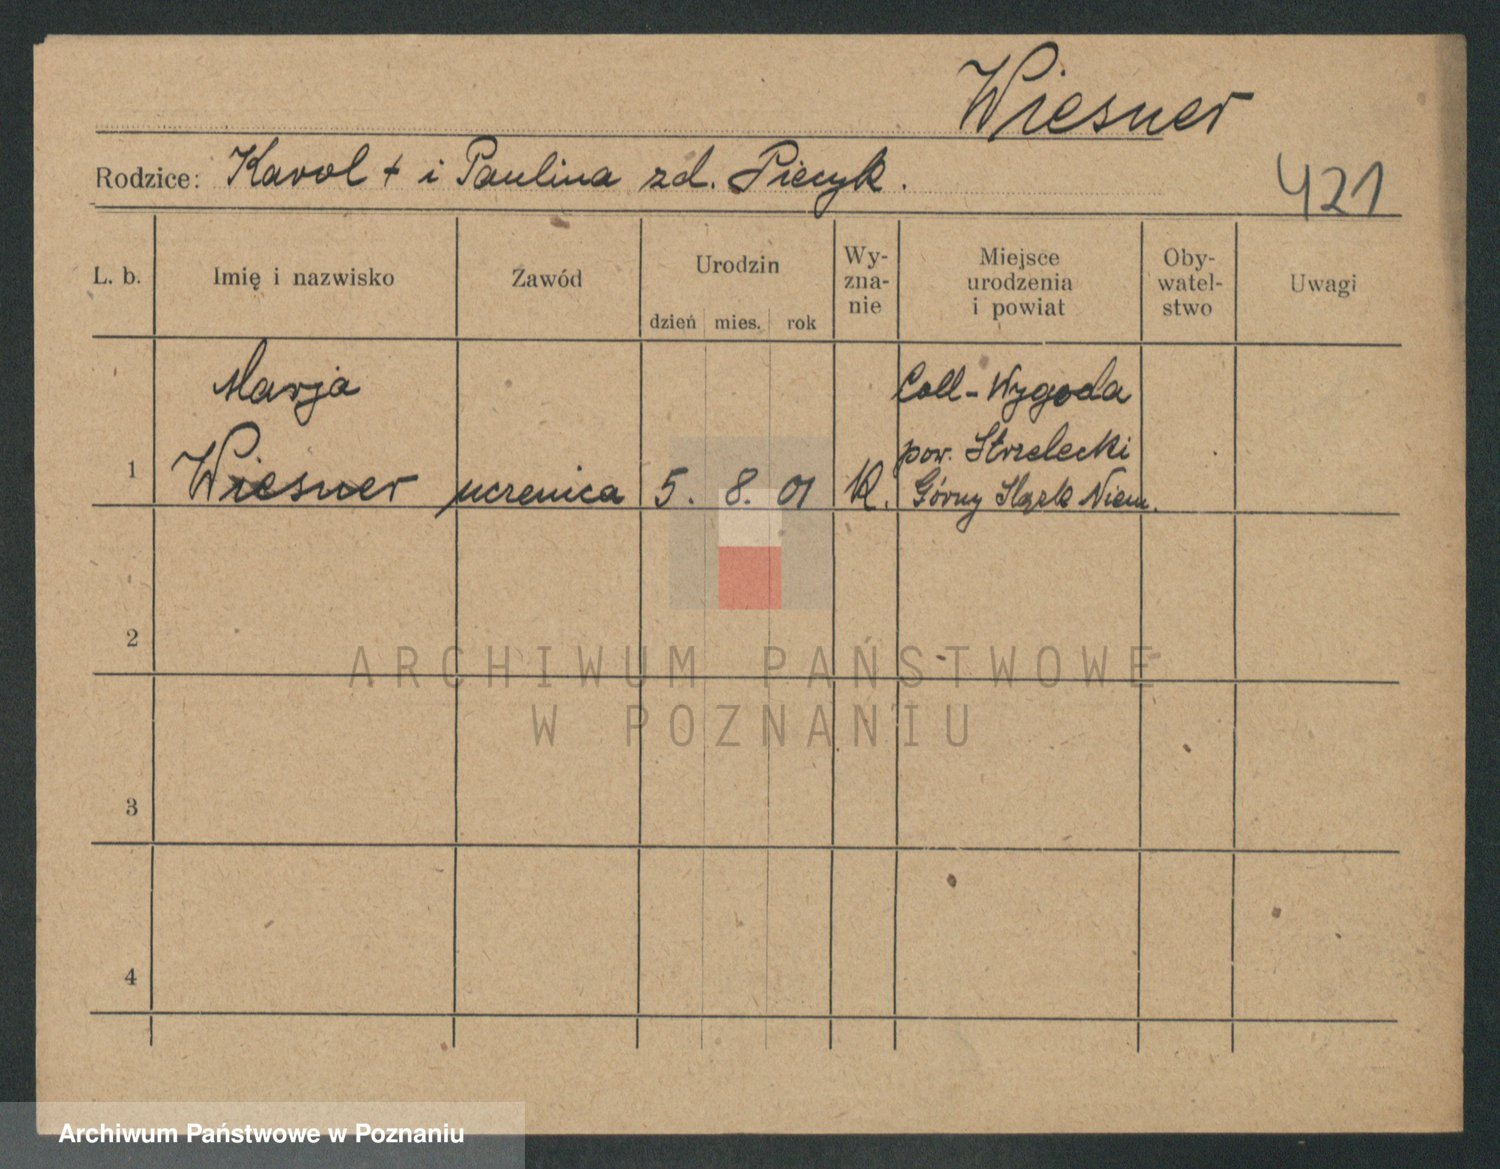 Wiesner
Rodzice: Karol + i Paulina zd. Piecyk.
421
L. b. Imię i nazwisko Zawód Urodzin dzień mies. rok Wy-zna-nie Miejsce urodzenia i powiat Oby-watel-stwo Uwagi
Marja Coll-Wygoda
pow. Strzelecki
1 Wiesner uczenica 5. 8. 01 K. Górny Śląsk Niem.
2
ARCHIWUM PAŃSTWOWE
W POZNANIU
3
4
Archiwum Państwowe w Poznaniu